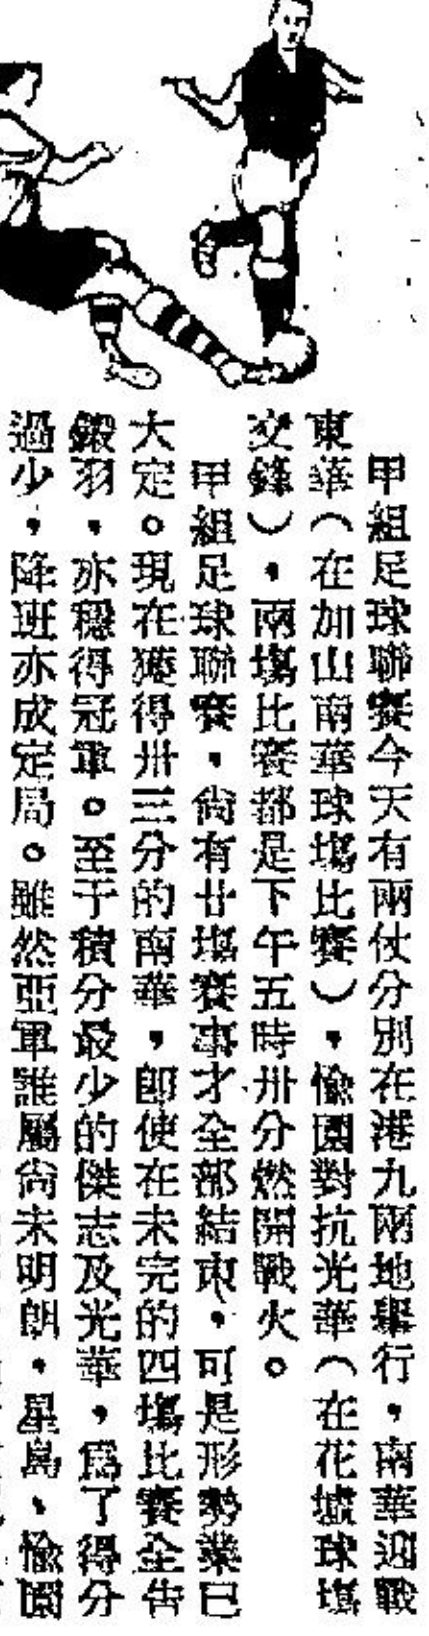 甲組足球聯賽今天有兩仗分別在港九兩地舉行，南華迎戰
東華（在加山南華球塲比賽），愉園對抗光華（在花墟球塲
交鋒），兩塲比賽都是下午五時卅分燃開戰火。
甲組足球聯賽，尙有廿塲賽事才全部結束，可是形勢業已
大定。現在獲得卅三分的南華，卽使在未完的四塲比賽全吿
鎩羽，亦穩得冠軍。至于積分最少的傑志及光華，爲了得分
過少，降班亦成定局。雖然亞軍誰屬尙未明朗，星島、愉園